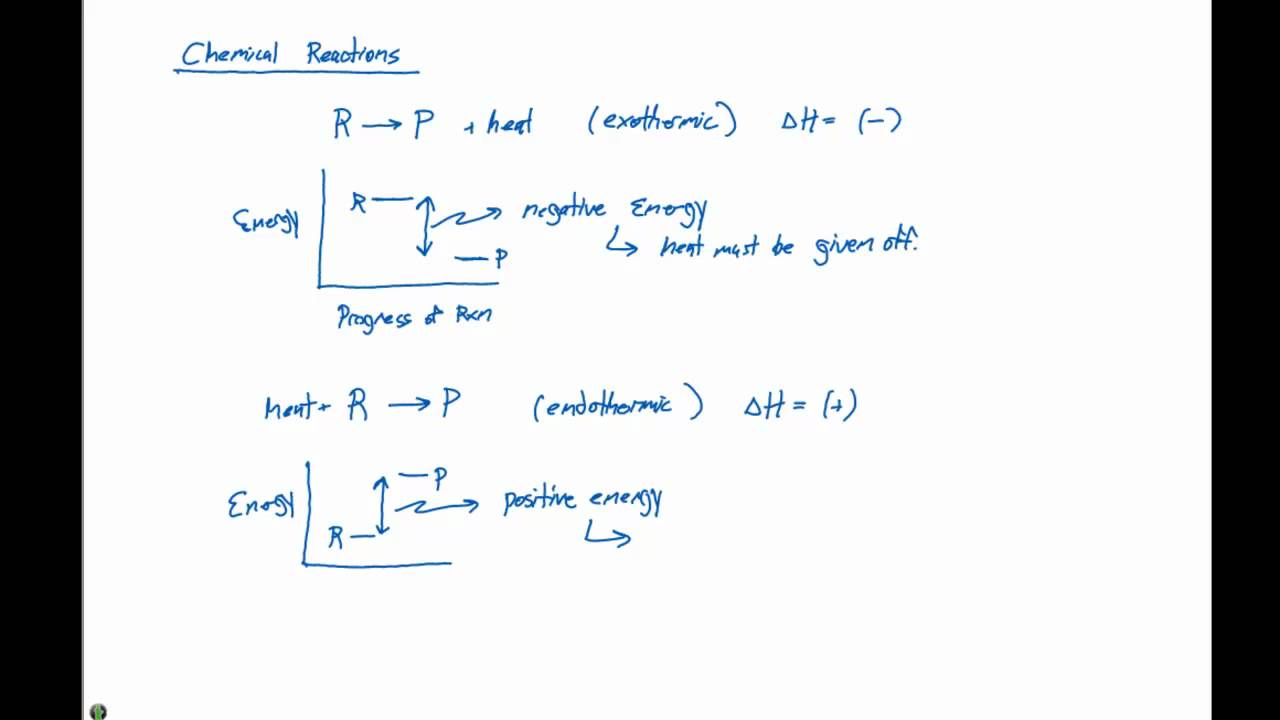 Chemical Reactions
R → P + heat (exothermic) ΔH = (-)
R
Energy
negative Energy
↳ heat must be given off.
P
Progress of Rxn
Heat + R → P (endothermic) ΔH = (+)
P
Energy
positive energy
R
↳